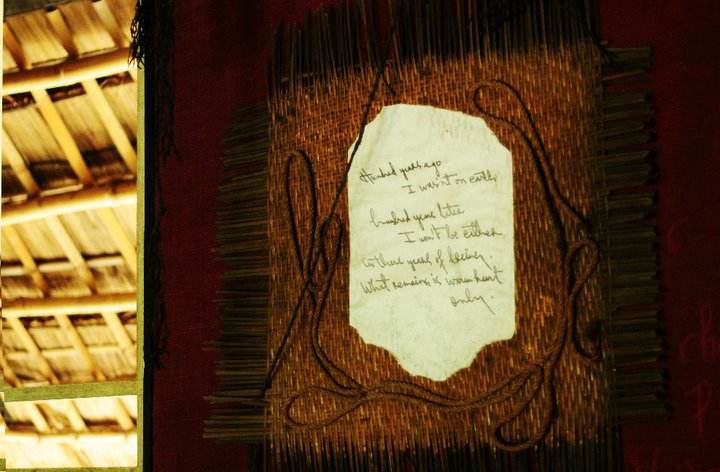 Hundred years ago
I wasn't on earth
hundred years later
I won't be either
In these years of being.
What remains is warm heart
only.